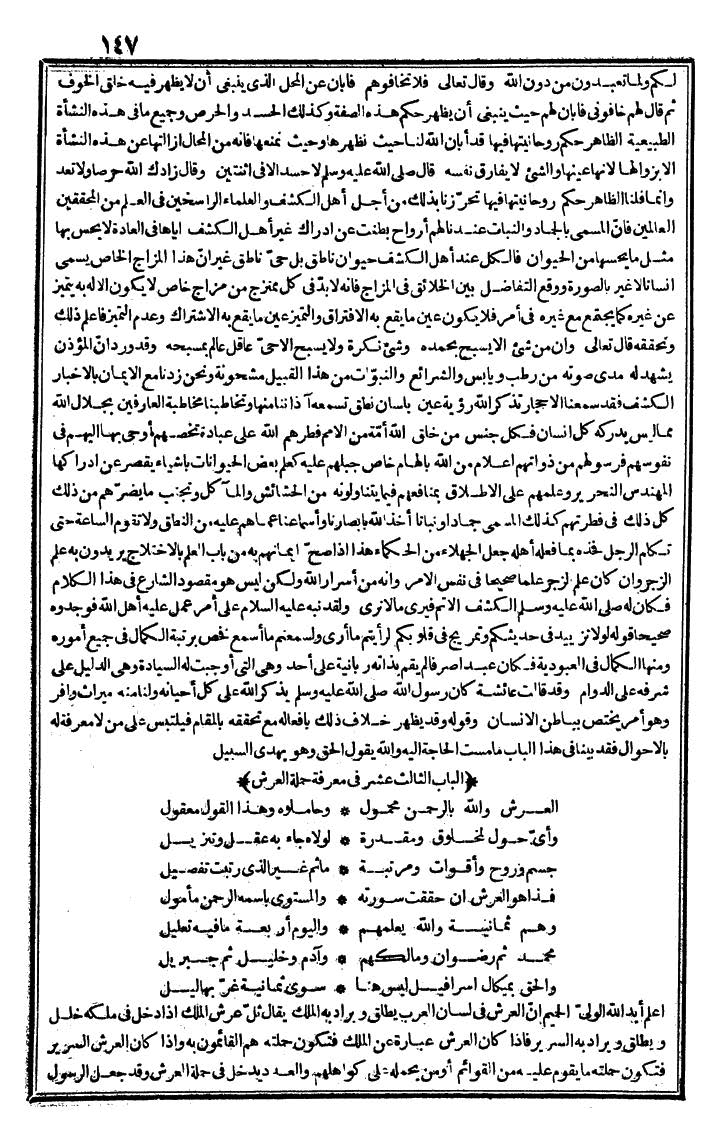 ١٤٧
لكم ولما تعبدون من دون الله وقال تعالى فلا تخافوهم فابان عن المحل الذى ينبغى أن لا يظهر فيه خلق الخوف
ثم قال لهم خافونى فابان لهم حيث ينبغى أن يظهر حكم هذه الصفة وكذلك الحسد والحرص وجميع مافى هذه النشأة
الطبيعية الظاهر حكم روحانيتها فيها قد أبان الله لنا حيث نظهرها وحيث نمنعها فانه من المحال ازالتها عن هذه النشأة
الابزوالها لانها عينها والشئ لا يفارق نفسه قال صلى الله عليه وسلم لا حسد الا فى اثنتين وقال زادك الله حرصا ولا تعد
وانما قلنا الظاهر حكم روحانيتها فيها تحرّزنا بذلك من أجل أهل الكشف والعلماء الراسخين فى العلم من المحققين
العالمين فانّ المسمى بالجماد والنبات عندنا لهم أرواح بطنت عن ادراك غير أهل الكشف اياها فى العادة لا يحس بها
مثل ما يحسها من الحيوان فالكل عند أهل الكشف حيوان ناطق بل حىّ ناطق غير انّ هذا المزاج الخاص يسمى
انسانا لا غير بالصورة ووقع التفاضل بين الخلائق فى المزاج فانه لابدّ فى كل ممتزج من مزاج خاص لا يكون الا له به يتميز
عن غيره كما يجتمع مع غيره فى أمر فلا يكون عين ما يقع به الافتراق والتميز عين ما يقع به الاشتراك وعدم التميز فاعلم ذلك
وتحققه قال تعالى وان من شئ الا يسبح بحمده وشئ نكرة ولا يسبح الا حىّ عاقل عالم بمسبحه وقد ورد انّ المؤذن
يشهد له مدى صوته من رطب ويابس والشرائع والنبوّات من هذا القبيل مشحونة ونحن زدنا مع الايمان بالاخبار
الكشف فقد سمعنا الاحجار تذكر الله رؤية عين بلسان نطق تسمعه آذاننا منها وتخاطبنا مخاطبة العارفين بجلال الله
مما ليس يدركه كل انسان فكل جنس من خلق الله أمّة من الامم فطرهم الله على عبادة تخصهم أوحى بها اليهم فى
نفوسهم فرسولهم من ذواتهم اعلام من الله بالهام خاص جبلهم عليه كعلم بعض الحيوانات باشياء يقصر عن ادراكها
المهندس النحرير وعلمهم على الاطلاق بمنافعهم فيما يتناولونه من الحشائش والمآكل وتجنب ما يضرّهم من ذلك
كل ذلك فى فطرتهم كذلك المسمى جمادا ونباتا أخذ الله بابصارنا وأسماعنا عما هم عليه من النطق ولا تقوم الساعة حتى
تكلم الرجل فخذه بما فعله أهله جعل الجهلاء من الحكماء هذا اذا صح ايمانهم به من باب العلم بالاختلاج يريدون به علم
الزجر وان كان علم الزجر علما صحيحا فى نفس الامر وانه من أسرار الله ولكن ليس هو مقصود الشارع فى هذا الكلام
فكان له صلى الله عليه وسلم الكشف الاتم فيرى ما لا نرى ولقد نبه عليه السلام على أمر عمل عليه أهل الله فوجدوه
صحيحا قوله لولا تزييد فى حديثكم وتمريج فى قلوبكم لرأيتم ما أرى ولسمعتم ما أسمع فخص برتبة الكمال فى جميع أموره
ومنها الكمال فى العبودية فكان عبدا صرفا لم يقم بذاته ربانية على أحد وهى التى أوجبت له السيادة وهى الدليل على
شرفه على الدوام وقد قالت عائشة كان رسول الله صلى الله عليه وسلم يذكر الله على كل أحيانه ولنا منه ميراث وافر
وهو أمر يختص بباطن الانسان وقوله وقد يظهر خلاف ذلك بافعاله مع تحققه بالمقام فيلتبس على من لا معرفة له
بالاحوال فقد بينا فى هذا الباب ما مست الحاجة اليه والله يقول الحق وهو يهدى السبيل
﴿الباب الثالث عشر فى معرفة حملة العرش﴾
العرش والله بالرحمن محمول * وحاملوه وهذا القول معقول
وأىّ حول لمخلوق ومقدرة * لولاه جاء به عقل وتنزيل
جسم وروح وأقوات ومرتبة * ماثم غير الذى رتبت تفصيل
فذا هو العرش ان حققت سورته * والمستوى باسمه الرحمن مأمول
وهم ثمانية والله يعلمهم * واليوم أربعة مافيه تعليل
محمد ثم رضوان ومالكهم * وآدم وخليل ثم جبريل
والحق بميكال اسرافيل ليس هنا * سوى ثمانية غرّ بهاليل
اعلم أيد الله الولىّ الحميم انّ العرش فى لسان العرب يطلق ويراد به الملك يقال ثلّ عرش الملك اذا دخل فى ملكه خلل
ويطلق ويراد به السرير فاذا كان العرش عبارة عن الملك فتكون حملته هم القائمون به واذا كان العرش السرير
فتكون حملته ما يقوم عليه من القوائم أو من يحمله على كواهلهم والعدد يدخل فى حملة العرش وقد جعل الرسول